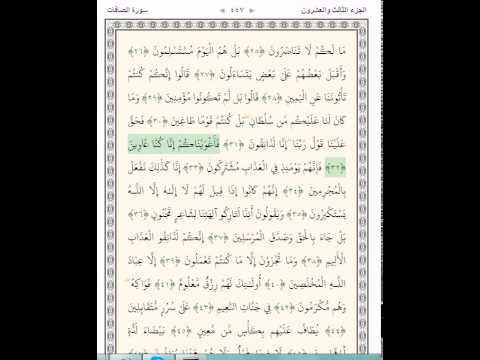 الجزء الثالث والعشرون ٤٤٧ سورة الصافات
مَا لَكُمْ لَا تَنَاصَرُونَ ﴿٢٥﴾ بَلْ هُمُ الْيَوْمَ مُسْتَسْلِمُونَ ﴿٢٦﴾
وَأَقْبَلَ بَعْضُهُمْ عَلَىٰ بَعْضٍ يَتَسَاءَلُونَ ﴿٢٧﴾ قَالُوا إِنَّكُمْ كُنتُمْ
تَأْتُونَنَا عَنِ الْيَمِينِ ﴿٢٨﴾ قَالُوا بَل لَّمْ تَكُونُوا مُؤْمِنِينَ ﴿٢٩﴾ وَمَا
كَانَ لَنَا عَلَيْكُم مِّن سُلْطَانٍ ۖ بَلْ كُنتُمْ قَوْمًا طَاغِينَ ﴿٣٠﴾ فَحَقَّ
عَلَيْنَا قَوْلُ رَبِّنَا ۖ إِنَّا لَذَائِقُونَ ﴿٣١﴾ فَأَغْوَيْنَاكُمْ إِنَّا كُنَّا غَاوِينَ
﴿٣٢﴾ فَإِنَّهُمْ يَوْمَئِذٍ فِي الْعَذَابِ مُشْتَرِكُونَ ﴿٣٣﴾ إِنَّا كَذَٰلِكَ نَفْعَلُ
بِالْمُجْرِمِينَ ﴿٣٤﴾ إِنَّهُمْ كَانُوا إِذَا قِيلَ لَهُمْ لَا إِلَٰهَ إِلَّا اللَّهُ
يَسْتَكْبِرُونَ ﴿٣٥﴾ وَيَقُولُونَ أَئِنَّا لَتَارِكُو آلِهَتِنَا لِشَاعِرٍ مَّجْنُونٍ ﴿٣٦﴾
بَلْ جَاءَ بِالْحَقِّ وَصَدَّقَ الْمُرْسَلِينَ ﴿٣٧﴾ إِنَّكُمْ لَذَائِقُو الْعَذَابِ
الْأَلِيمِ ﴿٣٨﴾ وَمَا تُجْزَوْنَ إِلَّا مَا كُنتُمْ تَعْمَلُونَ ﴿٣٩﴾ إِلَّا عِبَادَ
اللَّهِ الْمُخْلَصِينَ ﴿٤٠﴾ أُولَٰئِكَ لَهُمْ رِزْقٌ مَّعْلُومٌ ﴿٤١﴾ فَوَاكِهُ ۖ
وَهُم مُّكْرَمُونَ ﴿٤٢﴾ فِي جَنَّاتِ النَّعِيمِ ﴿٤٣﴾ عَلَىٰ سُرُرٍ مُّتَقَابِلِينَ
﴿٤٤﴾ يُطَافُ عَلَيْهِم بِكَأْسٍ مِّن مَّعِينٍ ﴿٤٥﴾ بَيْضَاءَ لَذَّةٍ